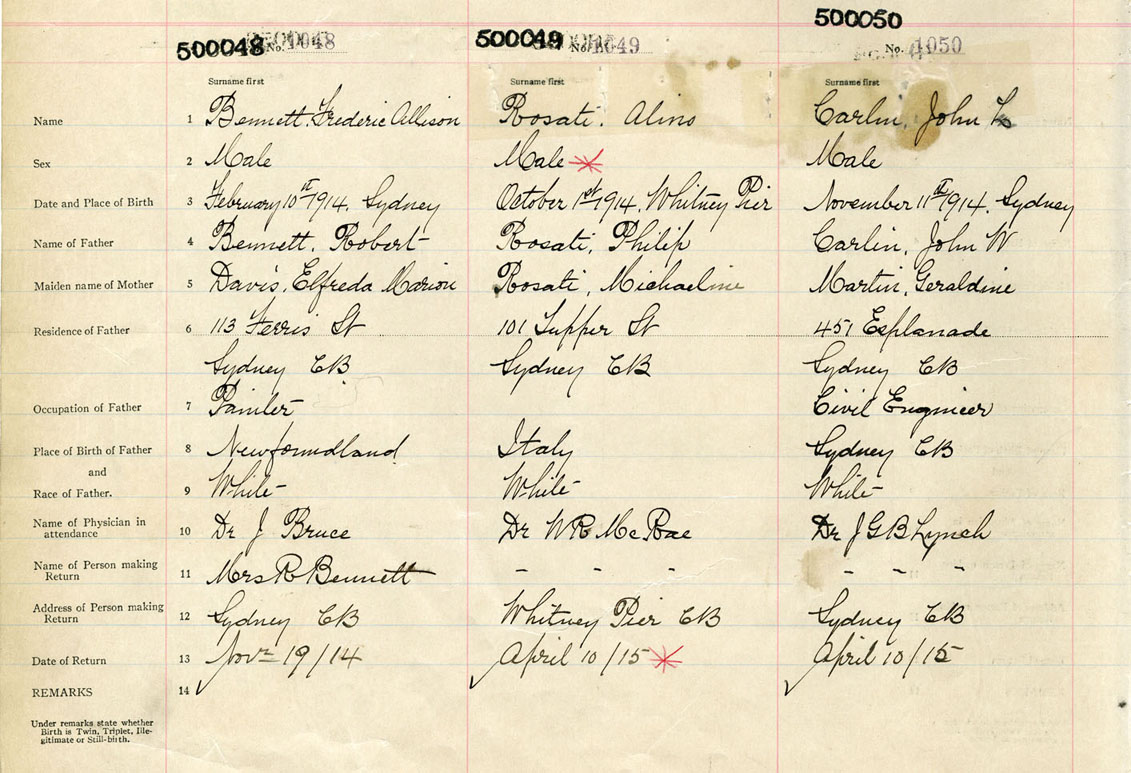 500048 No. 1048 500049 No. 1049 500050 No. 1050
Surname first Surname first Surname first
Name 1 Bennett, Frederic Allison Rosati, Alino Carlin, John L
Sex 2 Male Male Male
Date and Place of Birth 3 February 10th 1914, Sydney October 1st 1914, Whitney Pier November 11th 1914, Sydney
Name of Father 4 Bennett, Robert Rosati, Philip Carlin, John W
Maiden name of Mother 5 Davis, Elfreda Marion Rosati, Michaeline Martin, Geraldine
Residence of Father 6 113 Ferris St 101 Tupper St 451 Esplanade
Sydney CB Sydney CB Sydney CB
Occupation of Father 7 Painter Civil Engineer
Place of Birth of Father 8 Newfoundland Italy Sydney CB
and
Race of Father. 9 White White White
Name of Physician in
attendance 10 Dr J Bruce Dr W R McRae Dr J G B Lynch
Name of Person making
Return 11 Mrs R Bennett - - - - " -
Address of Person making
Return 12 Sydney CB Whitney Pier CB Sydney CB
Date of Return 13 Novr 19/14 April 10/15 April 10/15
REMARKS 14
Under remarks state whether
Birth is Twin, Triplet, Ille-
gitimate or Still-birth.